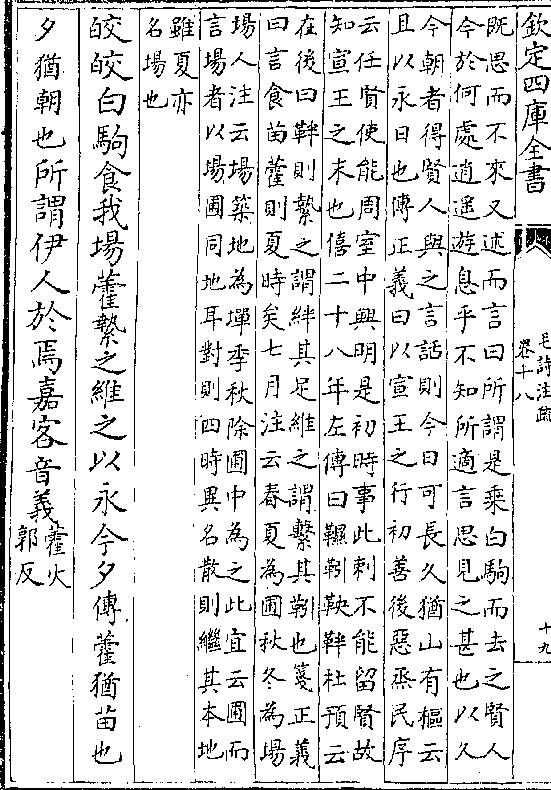 欽定四庫全書
毛詩注疏
卷十八
十九
既思而不來又述而言曰所謂是乘白駒而去之賢人
今於何處逍遙遊息乎不知所適言思見之甚也以久
今朝者得賢人與之言話則今日可長久猶山有樞云
且以永日也傳正義曰以宣王之行初善後惡烝民序
云任賢使能周室中興明是初時事此刺不能留賢故
知宣王之末也僖二十八年左傳曰韅靷鞅靽杜預云
在後曰靽則縶之謂絆其足維之謂繫其靷也箋正義
曰言食苗藿則夏時矣七月注云春夏為圃秋冬為場
場人注云場築地為墠季秋除圃中為之此宜云圃而
言場者以場圃同地耳對則四時異名散則繼其本地
雖夏亦
名場也
皎皎白駒食我場藿縶之維之以永今夕傳藿猶苗也
夕猶朝也所謂伊人於焉嘉客音義藿火
郭反